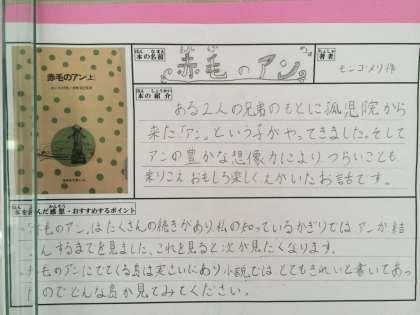 赤毛のアン(上)
本の名前
赤毛のアン
著者
モンゴメリ作
本の紹介
ある2人の兄弟のもとに孤児院から
来た「アン」という子がやってきました。そして
アンの豊かな想像力によりつらいことも
乗りこえおもしろ楽しくえがいたお話です。
んだ感想・おすすめするポイント
毛のアン、はたくさんの続きがあり私の知っているかぎりではアンが結
んするまでを見ました、これを見ると次が見たくなります。
毛のアンにでてくる島は実さいにあり小説ではとてもきれいと書いてあっ
のでどんな島か見てみてください。